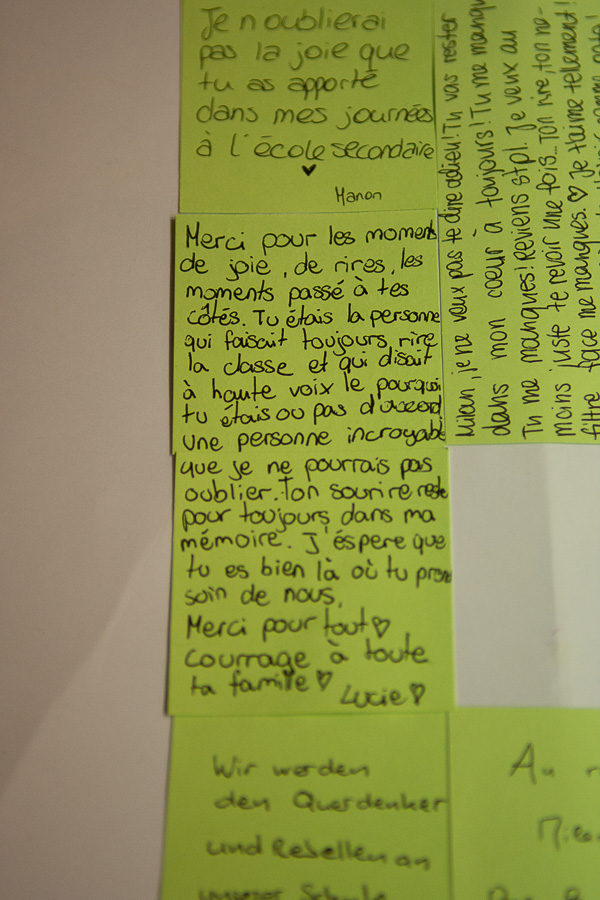 Je n'oublierai
pas la joie que
tu as apporté
dans mes journées
à l'école secondaire
Manon
Merci pour les moments
de joie, de rires, les
moments passé à tes
côtés. Tu étais la personne
qui faisait toujours rire
la classe et qui disait
à haute voix le pourquoi
tu étais ou pas d'accord.
Une personne incroyable
que je ne pourrais pas
oublier. Ton sourire reste
pour toujours dans ma
mémoire. J'éspere que
tu es bien là où tu prens
soin de nous.
Merci pour tout ♡
Courrage à toute
ta famille ♡
Lucie ♡
Milan, je ne veux pas te dire adieu! Tu vas rester
dans mon coeur à toujours! Tu me manqu
Tu me manques! Reviens stpl. Je veux au
moins juste te revoir une fois... Ton rire, ton ne-
filtre face me manques. ♡ Je t'aime tellement!
Wir werden
den Querdenker
und Rebellen an
unserer Schule
Au